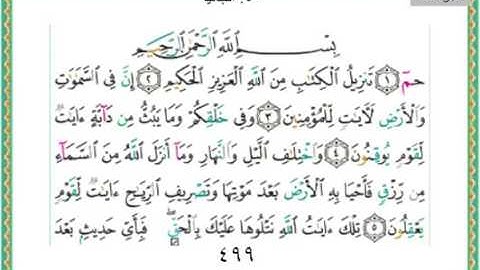 بِسْمِ اللَّهِ الرَّحْمَٰنِ الرَّحِيمِ
حمٓ ۝١ تَنزِيلُ الْكِتَٰبِ مِنَ اللَّهِ الْعَزِيزِ الْحَكِيمِ ۝٢ إِنَّ فِى السَّمَٰوَٰتِ
وَالْأَرْضِ لَءَايَٰتٍ لِّلْمُؤْمِنِينَ ۝٣ وَفِى خَلْقِكُمْ وَمَا يَبُثُّ مِن دَآبَّةٍ ءَايَٰتٌ
لِّقَوْمٍ يُوقِنُونَ ۝٤ وَاخْتِلَٰفِ الَّيْلِ وَالنَّهَارِ وَمَآ أَنزَلَ اللَّهُ مِنَ السَّمَآءِ
مِن رِّزْقٍ فَأَحْيَا بِهِ الْأَرْضَ بَعْدَ مَوْتِهَا وَتَصْرِيفِ الرِّيَٰحِ ءَايَٰتٌ لِّقَوْمٍ
يَعْقِلُونَ ۝٥ تِلْكَ ءَايَٰتُ اللَّهِ نَتْلُوهَا عَلَيْكَ بِالْحَقِّ ۖ فَبِأَىِّ حَدِيثٍۭ بَعْدَ
٤٩٩